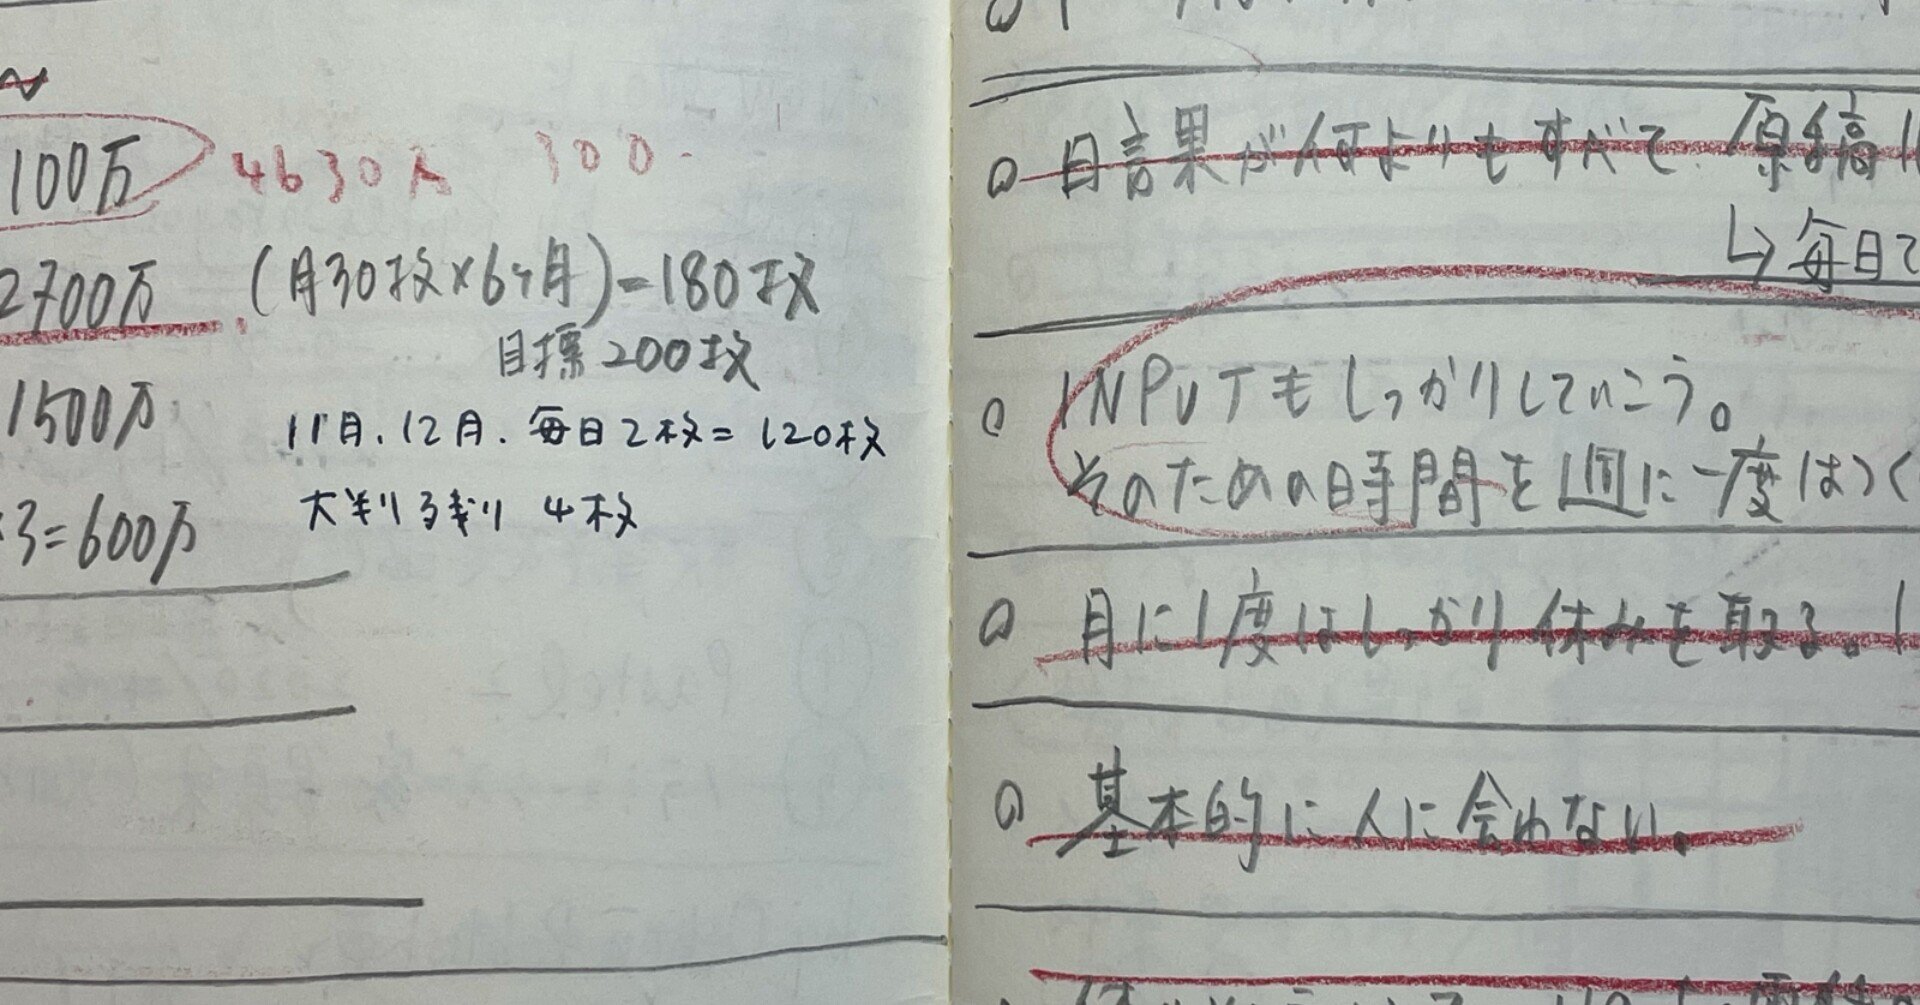 100万 4630 300
2700万 (月30枚×6ヶ月)=180枚
目標200枚
1500万
11月、12月、毎日2枚=120枚
大判う残り 4枚
3=600万
日課が何よりもすべて。原稿
↳毎日
INPUTもしっかりしていこう。
そのための時間を週に一度はつく
月に1度はしっかり休みを取る。
基本的に人に会わない。